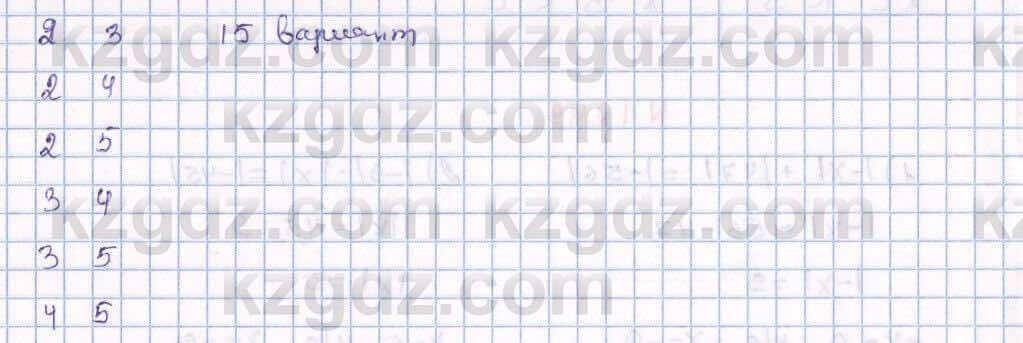 2 3 15 вариант
2 4
2 5
3 4
3 5
4 5
kzgdz.com
kzgdz.com
kzgdz.com
kzgdz.com
kzgdz.com
kzgdz.com